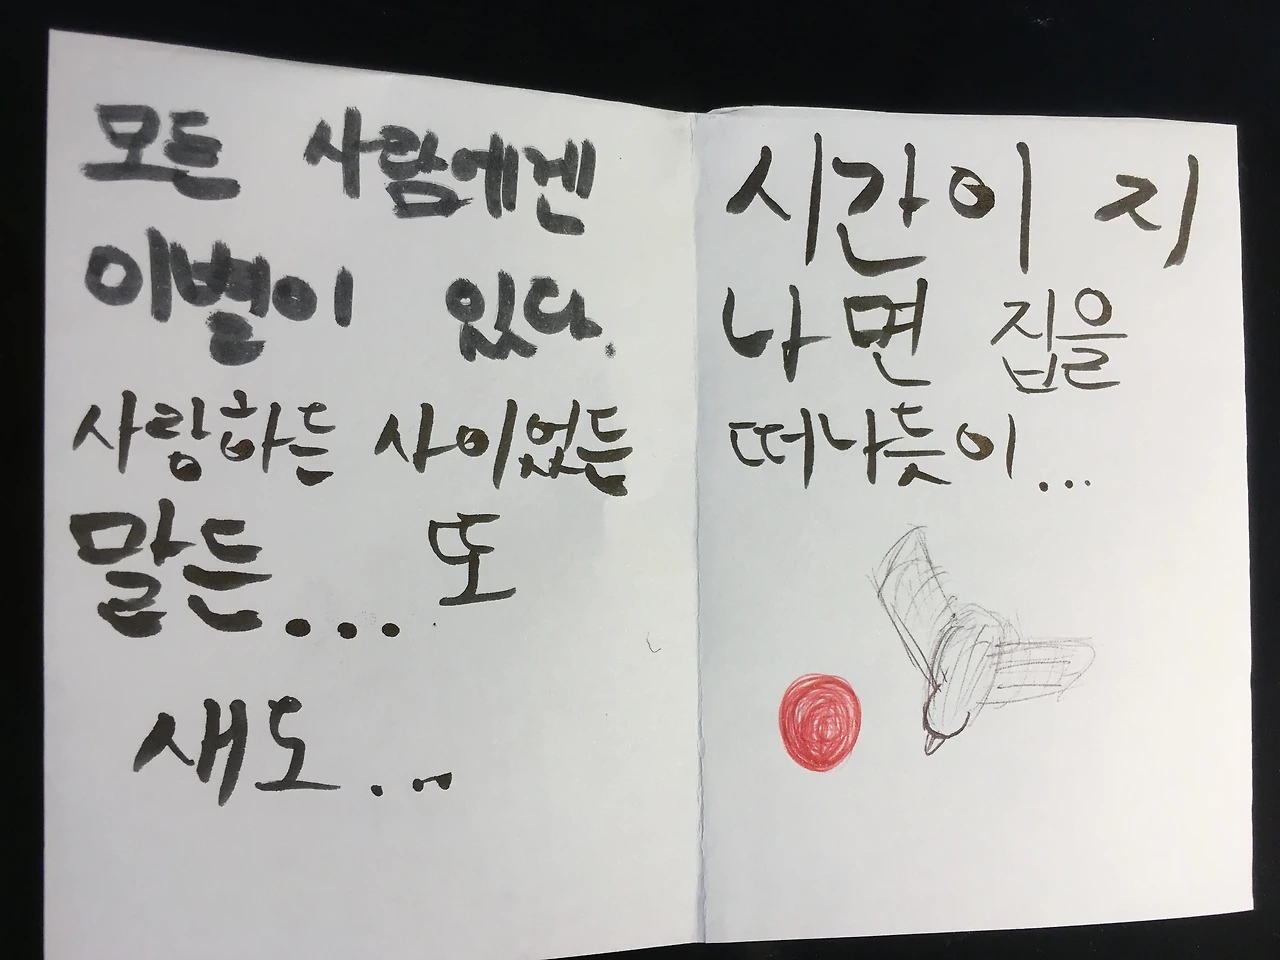 모든 사람에겐
이별이 있다.
사랑하든 사이었든
말든... 또
새도...
시간이 지
나면 집을
떠나듯이...